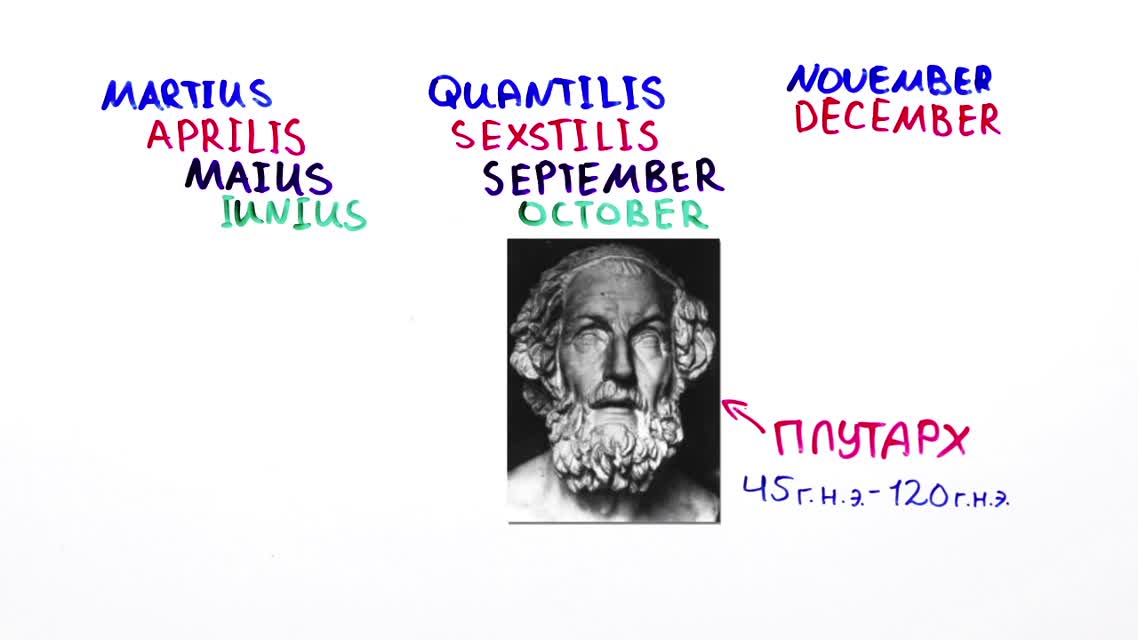 MARTIUS
APRILIS
MAIUS
IUNIUS
QUANTILIS
SEXSTILIS
SEPTEMBER
OCTOBER
NOVEMBER
DECEMBER
ПЛУТАРХ
45 г.н.э. - 120 г.н.э.